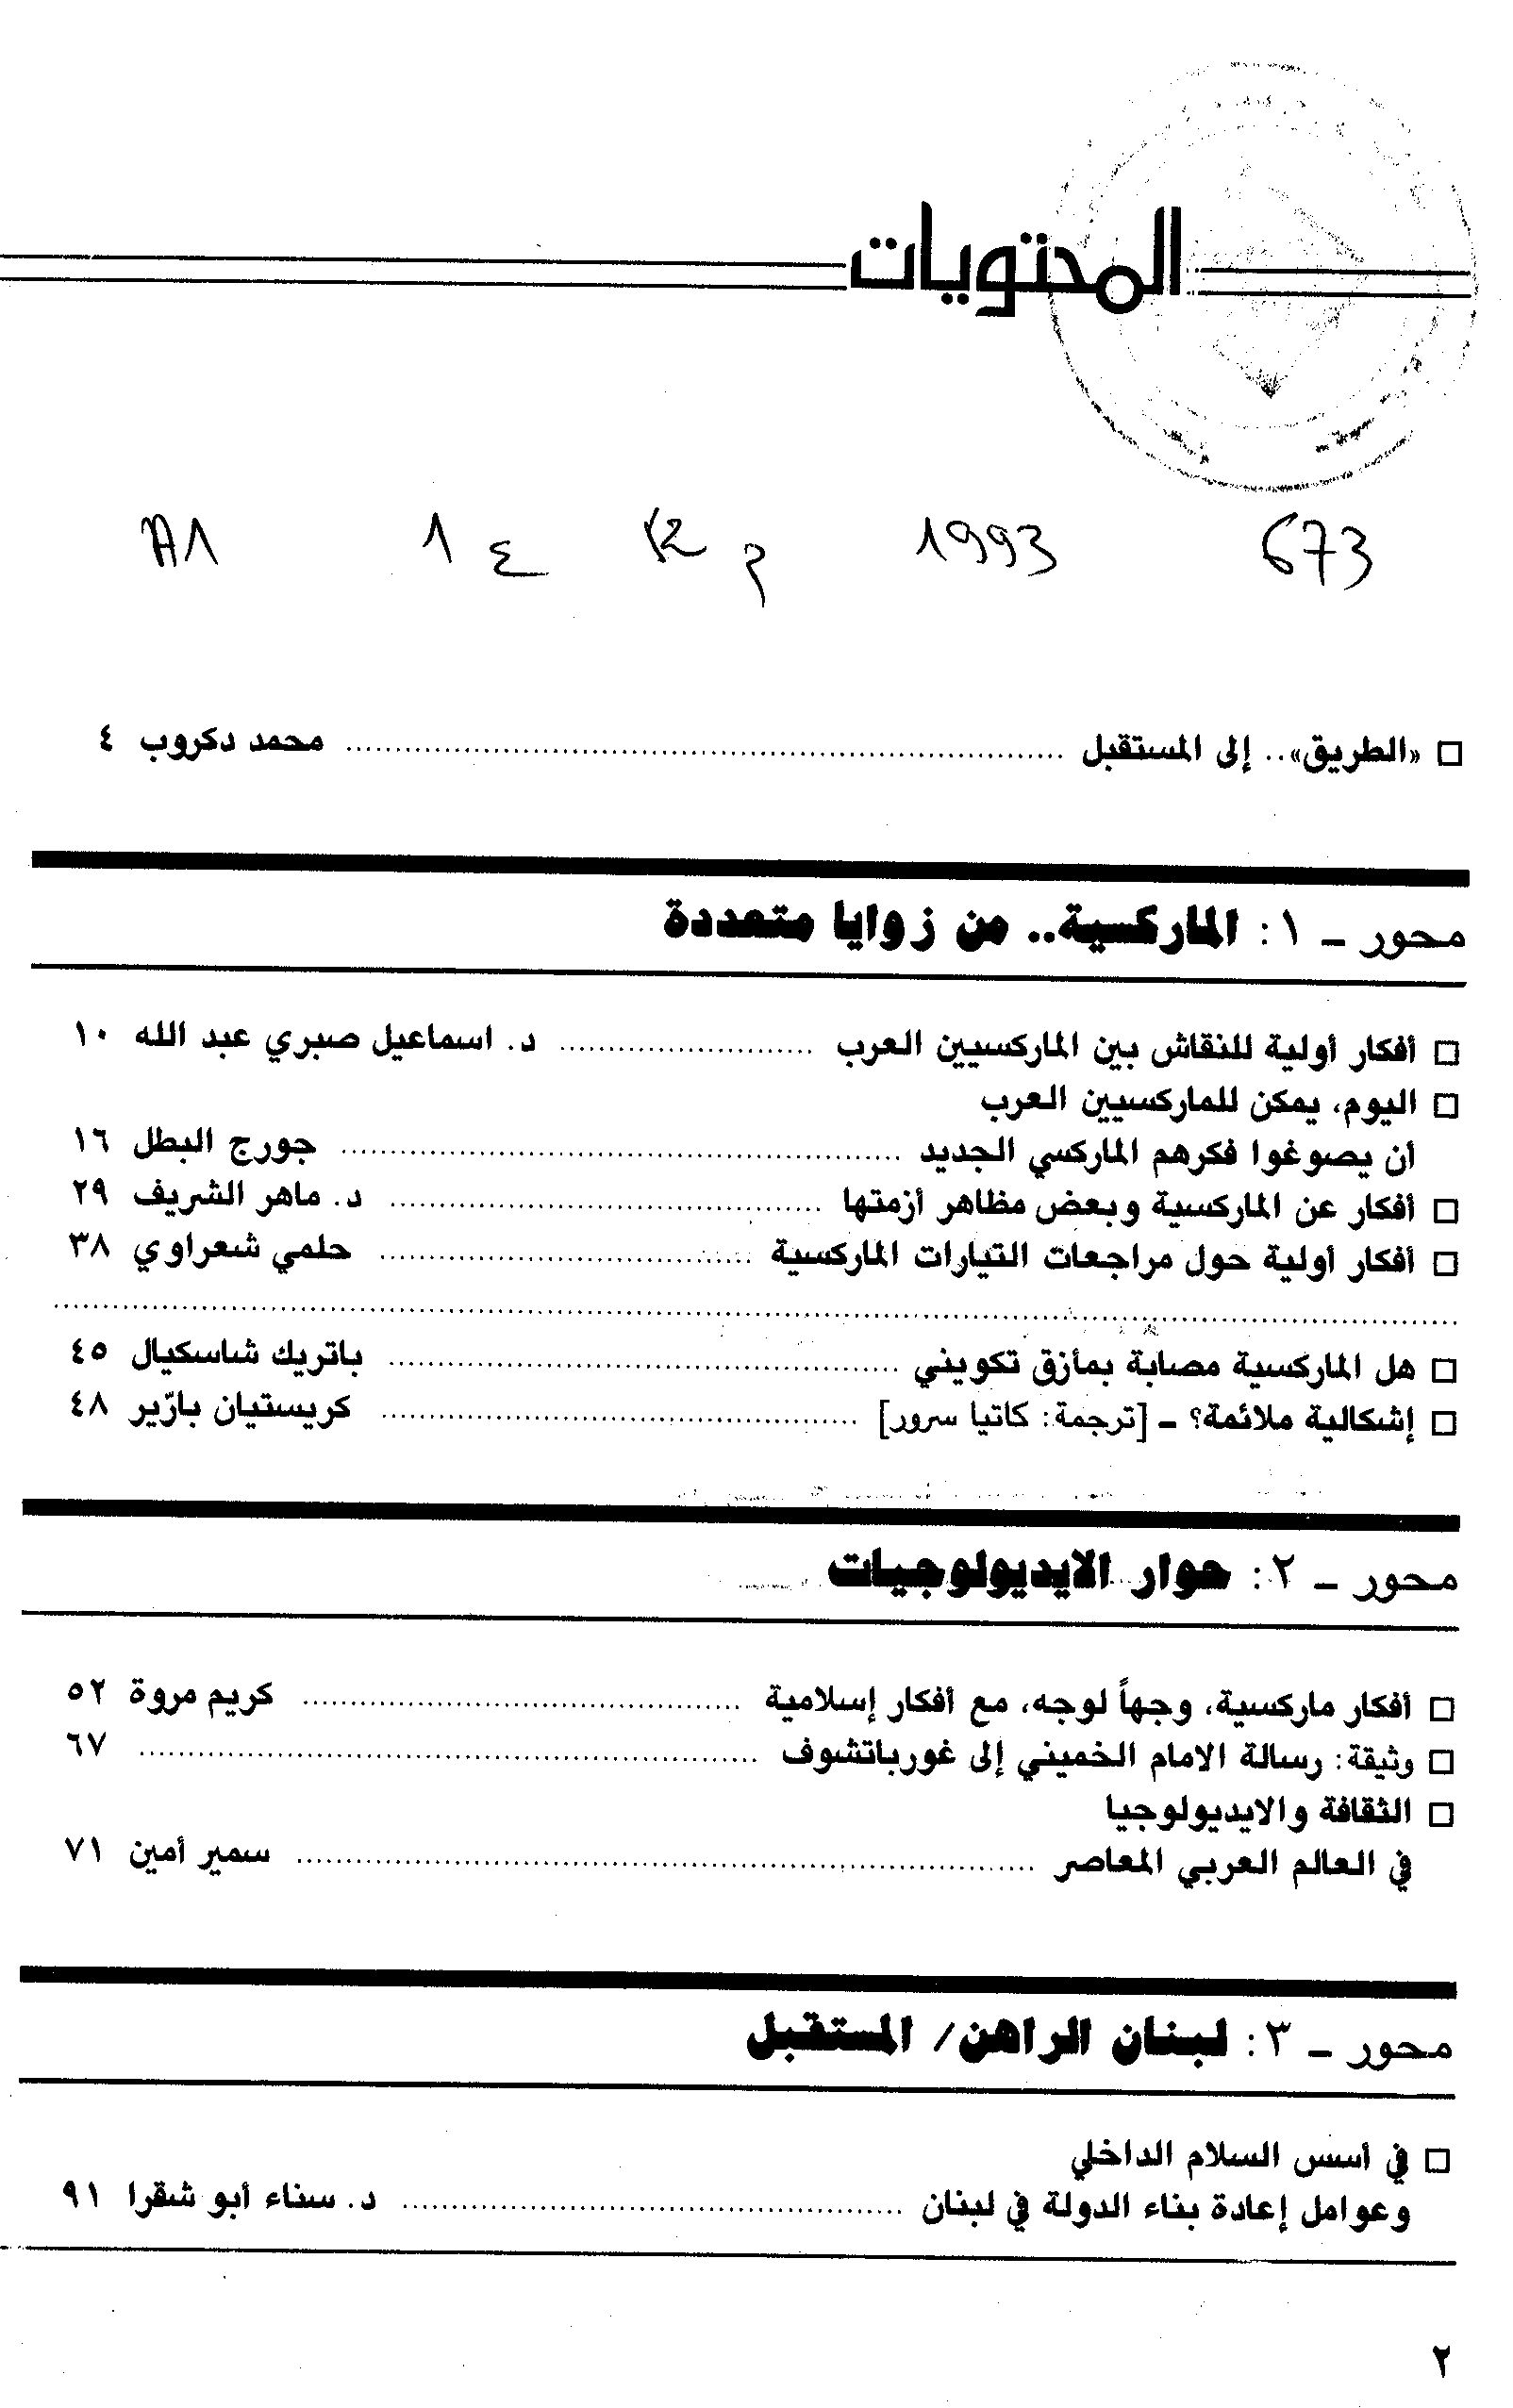 المحتويات
673 1993 م ع 1
□ «الطريق».. إلى المستقبل ........ محمد دكروب ٤
محور ـ ١: الماركسية.. من زوايا متعددة
□ أفكار أولية للنقاش بين الماركسيين العرب ........ د. اسماعيل صبري عبد الله ١٠
□ اليوم، يمكن للماركسيين العرب
أن يصوغوا فكرهم الماركسي الجديد ........ جورج البطل ١٦
□ أفكار عن الماركسية وبعض مظاهر أزمتها ........ د. ماهر الشريف ٢٩
□ أفكار أولية حول مراجعات التيارات الماركسية ........ حلمي شعراوي ٣٨
□ هل الماركسية مصابة بمأزق تكويني ........ باتريك شاسكيال ٤٥
□ إشكالية ملائمة؟ ـ [ترجمة: كاتيا سرور] ........ كريستيان بارّير ٤٨
محور ـ ٢: حوار الايديولوجيات
□ أفكار ماركسية، وجهاً لوجه، مع أفكار إسلامية ........ كريم مروة ٥٢
□ وثيقة: رسالة الامام الخميني إلى غورباتشوف ........ ٦٧
□ الثقافة والايديولوجيا
في العالم العربي المعاصر ........ سمير أمين ٧١
محور ـ ٣: لبنان الراهن/ المستقبل
□ في أسس السلام الداخلي
وعوامل إعادة بناء الدولة في لبنان ........ د. سناء أبو شقرا ٩١
٢